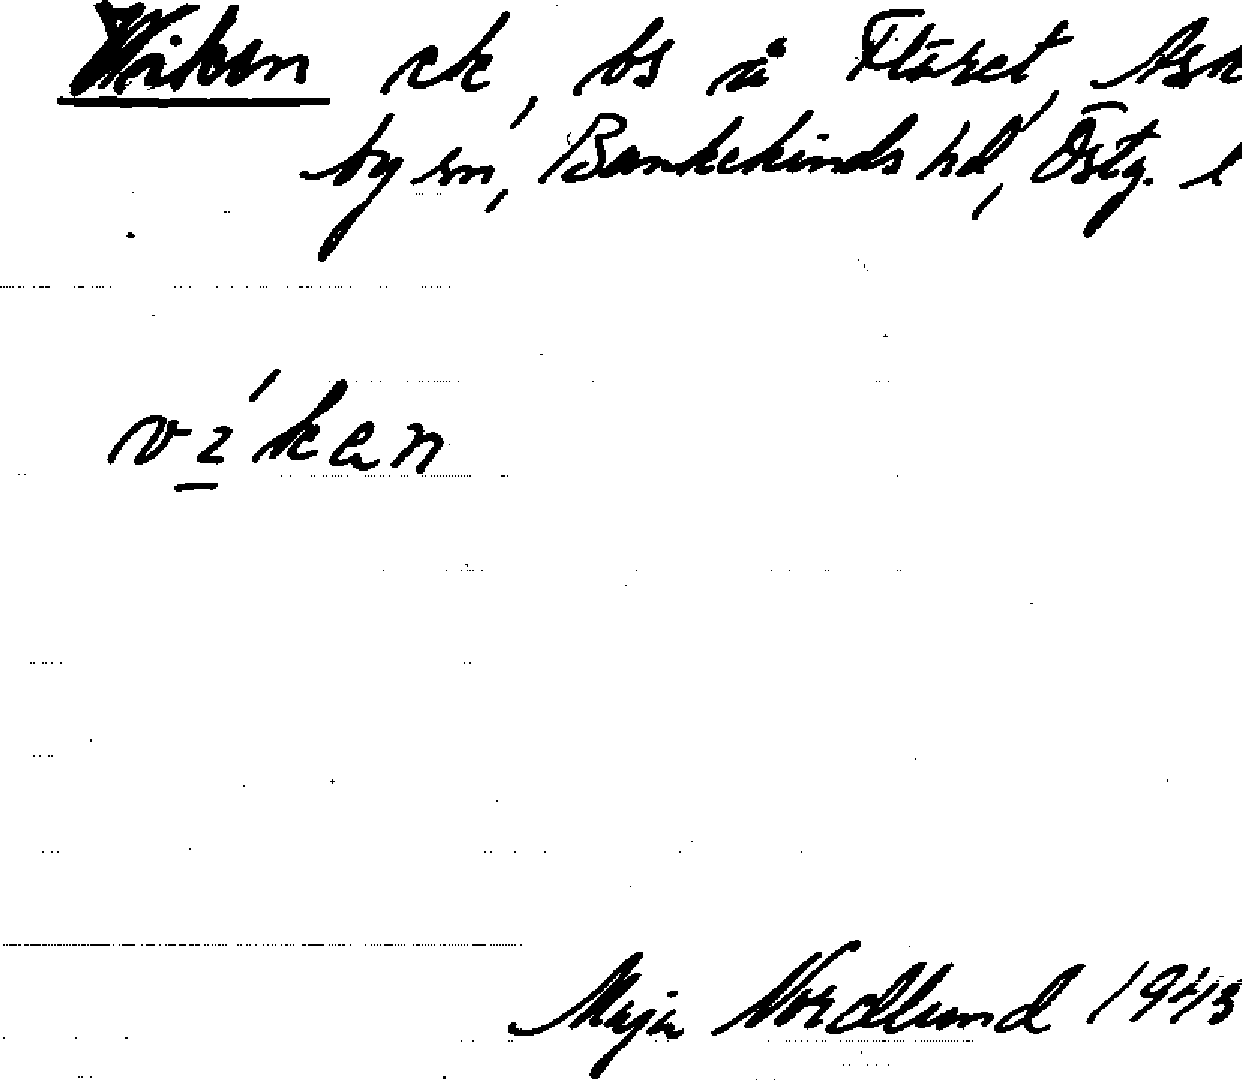 Viken ek, bs å Fläret, Ask
by sn, Bankekinds hd, Östg. l
vi´ken
Maja Nordlund 1943